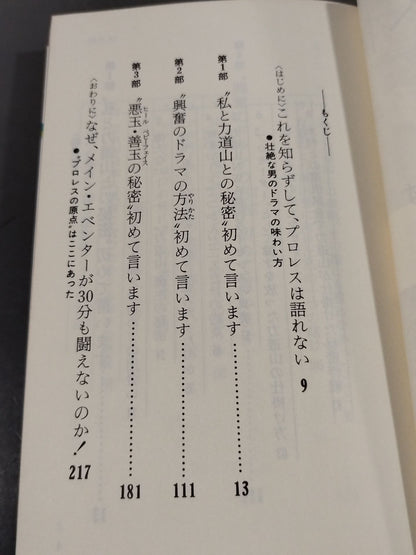 ―もくじ―
〈はじめに〉これを知らずして、プロレスは語れない 9
●壮絶な男のドラマの味わい方
第1部 “私と力道山との秘密”初めて言います…………… 13
第2部 “興奮のドラマの方法”初めて言います…………… 111
やりかた
第3部 “悪玉・善玉の秘密”初めて言います…………… 181
ヒール ベビーフェイス
〈おわりに〉なぜ、メイン・エベンターが30分も闘えないのか! 217
●“プロレスの原点”はここにあった